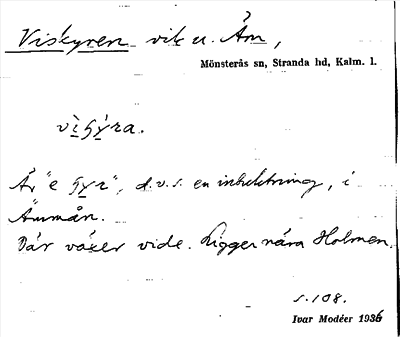 Viskyren vik u. Åm,
Mönsterås sn, Stranda hd, Kalm. l.
Är "e gyr", d.v.s. en inbuktning, i
Åmmån.
Där växer vide. Ligger nära Holmen.
s. 108.
Ivar Modéer 1936